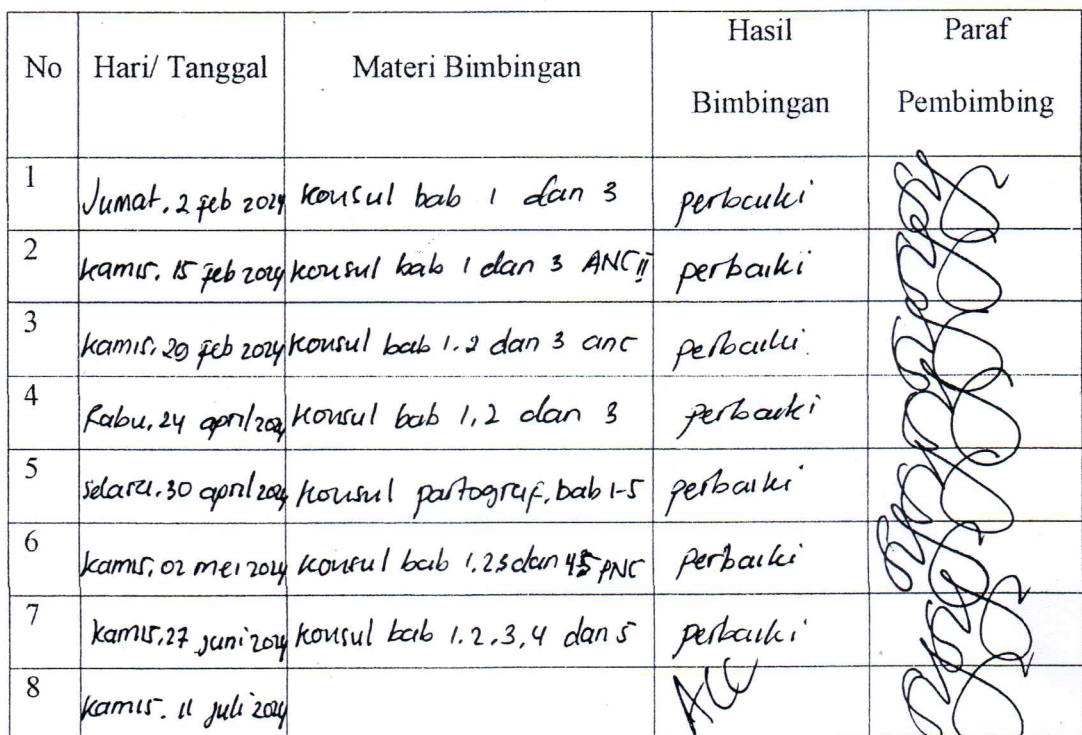 No Hari/ Tanggal Materi Bimbingan Hasil Bimbingan Paraf Pembimbing
1 Jumat, 2 feb 2024 konsul bab 1 dan 3 perbaiki
2 kamis, 15 feb 2024 konsul bab 1 dan 3 ANC II perbaiki
3 kamis, 29 feb 2024 konsul bab 1.2 dan 3 anc perbaiki
4 Rabu, 24 april 2024 konsul bab 1,2 dan 3 perbaiki
5 selasa, 30 april 2024 konsul partograf, bab 1-5 perbaiki
6 kamis, 02 mei 2024 konsul bab 1.2 3 dan 4 5 PNC perbaiki
7 kamis, 27 juni 2024 konsul bab 1.2.3,4 dan 5 perbaiki
8 kamis, 11 juli 2024 ACC